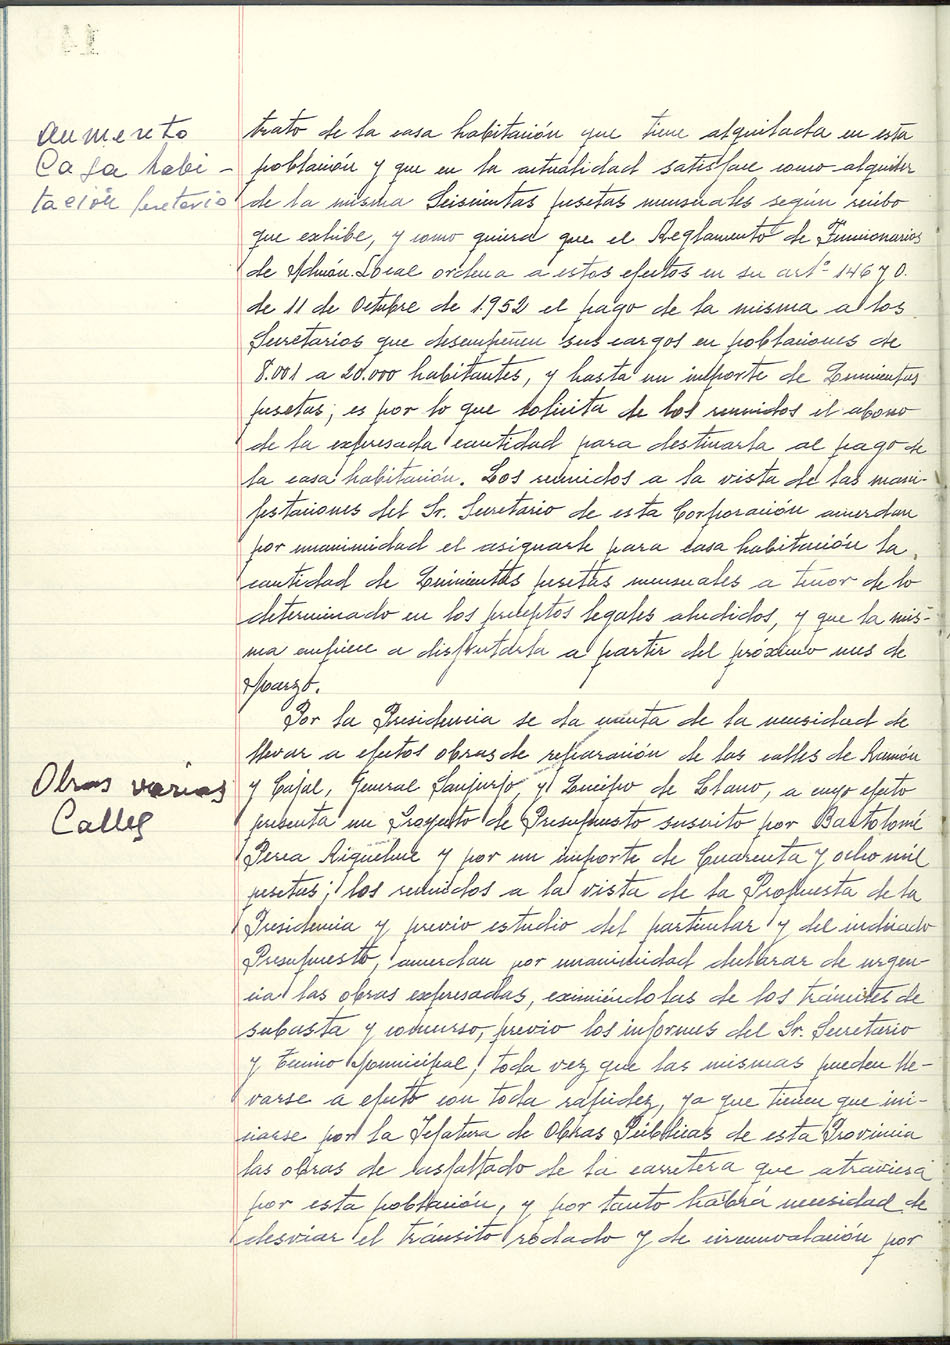 aumento
Casa habi-
tación Secretario
trato de la casa habitación que tiene alquilada en esta
población y que en la actualidad satisface como alquiler
de la misma Seiscientas pesetas mensuales según recibo
que exhibe, y como quiera que el Reglamento de Funcionarios
de Admón. Local ordena a estos efectos en su artº 146 y O.
de 11 de Octubre de 1952 el pago de la misma a los
Secretarios que desempeñen sus cargos en poblaciones de
8.001 a 20.000 habitantes, y hasta un importe de Quinientas
pesetas; es por lo que solicita de los reunidos el abono
de la expresada cantidad para destinarla al pago de
la casa habitación. Los reunidos a la vista de las mani-
festaciones del Sr. Secretario de esta Corporación acuerdan
por unanimidad el asignarle para casa habitación la
cantidad de Quinientas pesetas mensuales a tenor de lo
determinado en los preceptos legales aludidos, y que la mis-
ma empiece a disfrutarla a partir del próximo mes de
Marzo.
Por la Presidencia se da cuenta de la necesidad de
llevar a efectos obras de reparación de las calles de Ramón
Obras varias
Calles
y Cajal, General Sanjurjo, y Queipo de Llano, a cuyo efecto
presenta un Proyecto de Presupuesto suscrito por Bartolomé
Perea Riquelme y por un importe de Cuarenta y ocho mil
pesetas; los reunidos a la vista de la Propuesta de la
Presidencia y previo estudio del particular y del indicado
Presupuesto, acuerdan por unanimidad declarar de urgen-
cia las obras expresadas, eximiéndolas de los trámites de
subasta y concurso, previo los informes del Sr. Secretario
y Técnico Municipal, toda vez que las mismas pueden lle-
varse a efecto con toda rapidez, ya que tienen que ini-
ciarse por la Jefatura de Obras Públicas de esta Provincia
las obras de asfaltado de la carretera que atraviesa
por esta población, y por tanto habrá necesidad de
desviar el tránsito rodado y de circunvalación por